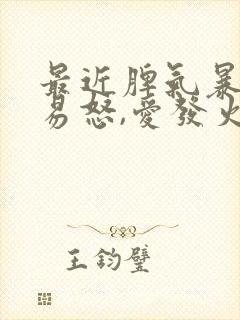 最近脾氣暴
易怒,愛發火
王鈞璧